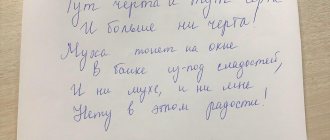 Тут черта и тут черта
И больше ни черта!
Муха тонет на окне
В банке из-под сладостей,
И ни мухе, и ни мне
Нету в этом радости!